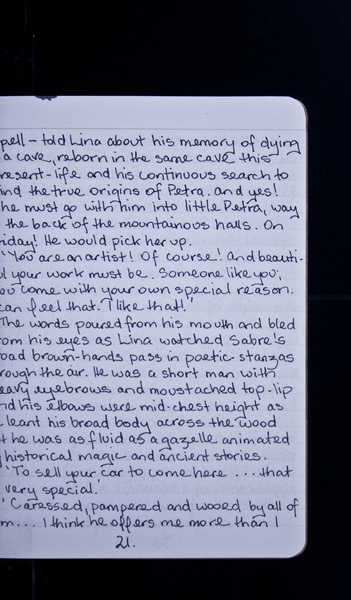 pell - told Lina about his memory of dying
a cave, reborn in the same cave this
resent-life and his continuous search to
ind the true origins of Petra. and yes!
he must go with him into little Petra, way
the back of the mountainous halls. On
iday! He would pick her up.
"You are an artist! Of course! And beauti-
l your work must be. Someone like you,
ou come with your own special reason.
can feel that. I like that!"
The words poured from his mouth and bled
om his eyes as Lina watched Sabre's
oad brown-hands pass in poetic stanzas
rough the air. He was a short man with
eavy eyebrows and moustached top-lip
nd his elbows were mid-chest height as
leant his broad body across the wood
t he was as fluid as a gazelle animated
historical magic and ancient stories.
'To sell your car to come here ... that
very special.'
'Caressed, pampered and wooed by all of
m... I think he offers me more than I
21.